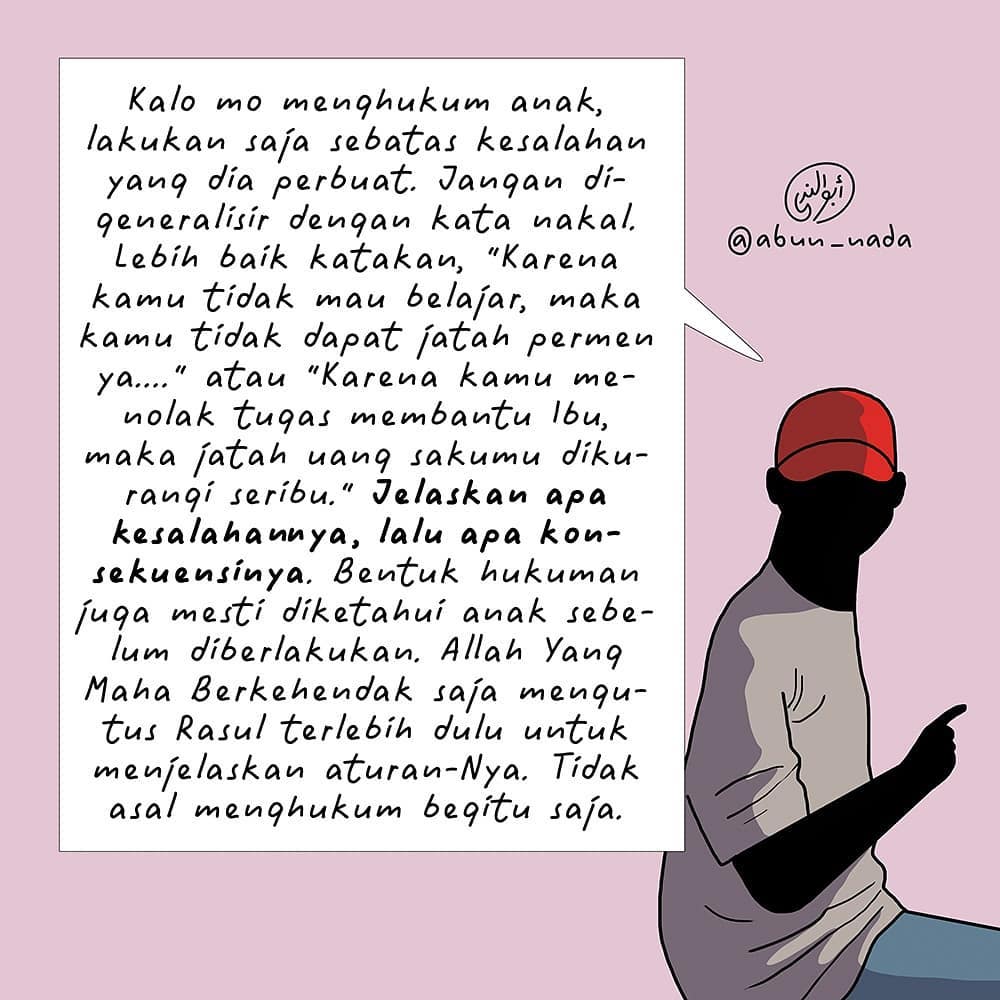 Kalo mo menghukum anak,
lakukan saja sebatas kesalahan
yang dia perbuat. Jangan di-
generalisir dengan kata nakal.
Lebih baik katakan, "Karena
kamu tidak mau belajar, maka
kamu tidak dapat jatah permen
ya...." atau "Karena kamu me-
nolak tugas membantu Ibu,
maka jatah uang sakumu diku-
rangi seribu." Jelaskan apa
kesalahannya, lalu apa kon-
sekuensinya. Bentuk hukuman
juga mesti diketahui anak sebe-
lum diberlakukan. Allah Yang
Maha Berkehendak saja mengu-
tus Rasul terlebih dulu untuk
menjelaskan aturan-Nya. Tidak
asal menghukum begitu saja.
@abun_nada